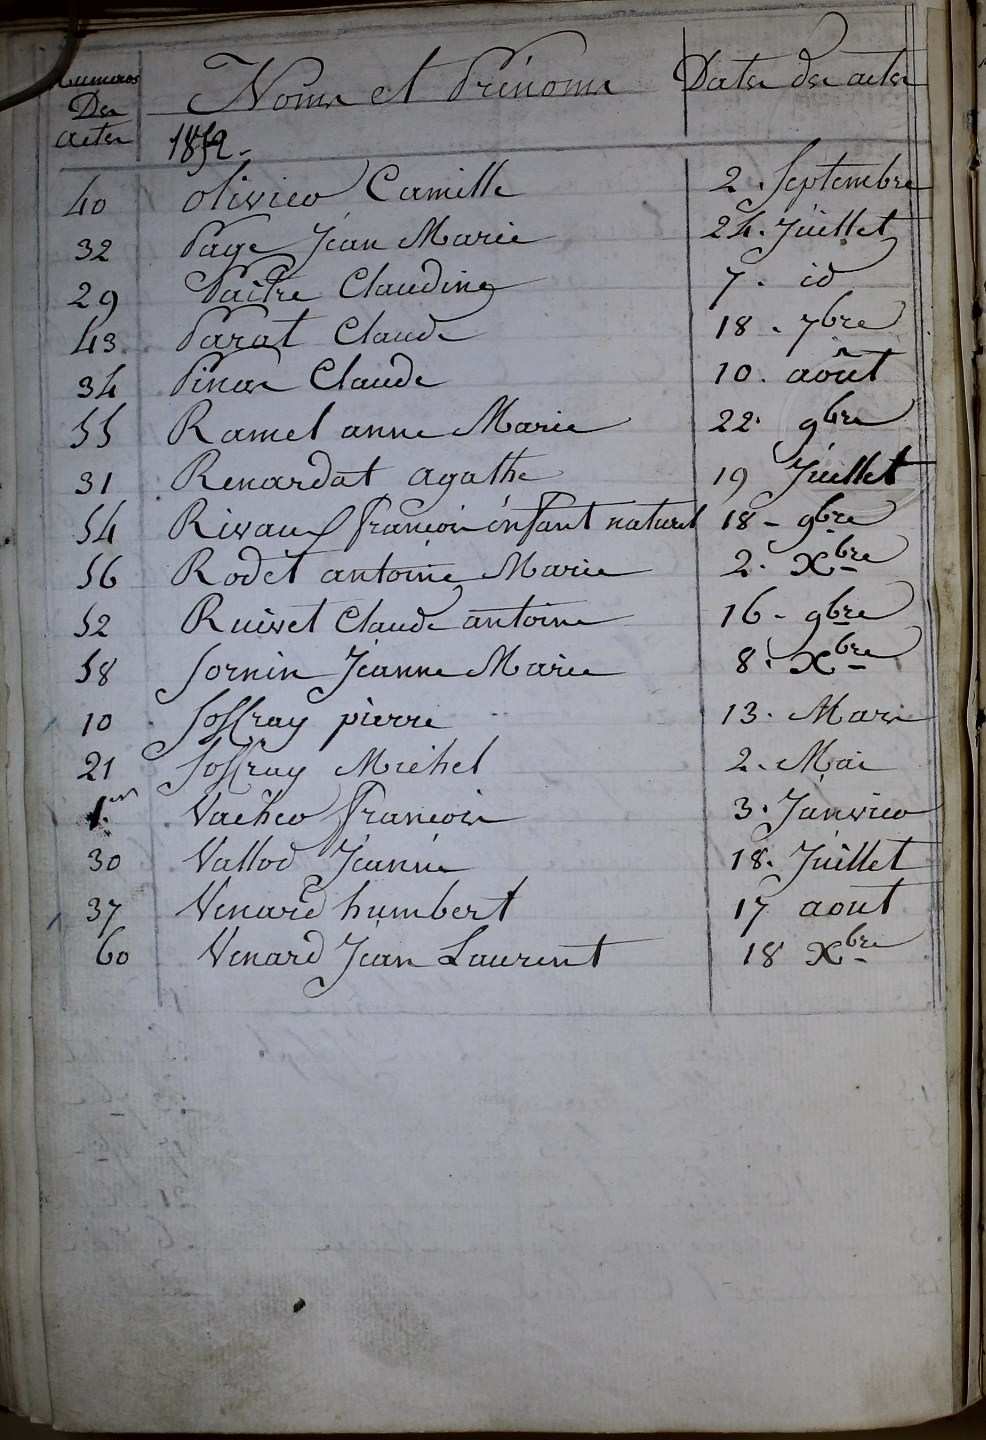 Numeros Des actes Noms et Prénoms Dates des actes
1852.
40 Olivier Camille 2. Septembre
32 Page Jean Marie 24. Juillet
29 Paitre Claudine 7. id
43 Parat Claude 18. 7bre
34 Pinos Claude 10. août
55 Ramel anne Marie 22. 9bre
31 Renardat agathe 19 Juillet
54 Rivaux françois enfant naturel 18 - 9bre
56 Rodet antoine Marie 2. Xbre
52 Ruivet Claude antoine 16 - 9bre
58 Sornin Jeanne Marie 8. Xbre
10 Soffray pierre 13. Mars
21 Soffray Michel 2. Mai
1er Vacher françois 3. Janvier
30 Vallod Jeanne 18. Juillet
37 Venard humbert 17 aout
60 Venard Jean Laurent 18 Xbre